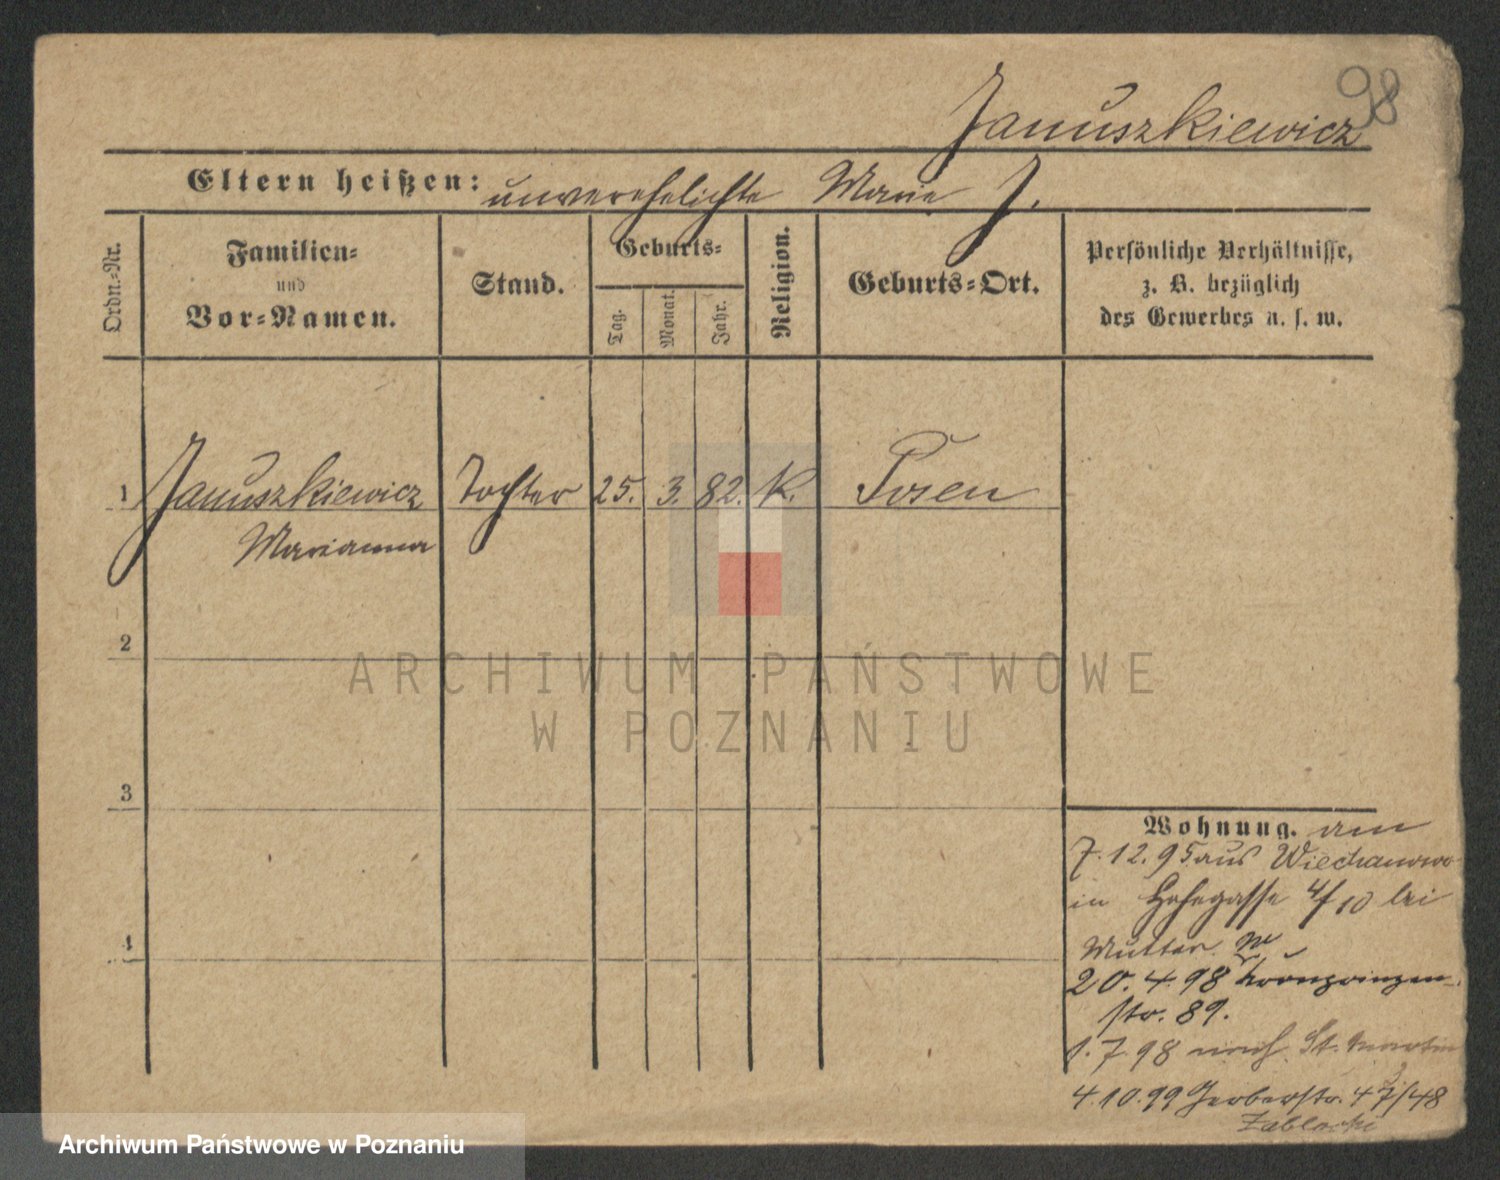 98
Januszkiewicz
Eltern heißen: unverehelichte Marie J.
Ordn.-Nr.
Familien-
und
Vor-Namen.
Stand.
Geburts-
Tag.
Monat.
Jahr.
Religion.
Geburts-Ort.
Persönliche Verhältnisse,
z. B. bezüglich
des Gewerbes u. s. w.
1 Januszkiewicz Tochter 25. 3. 82. K. Posen
Marianna
2
3
4
Wohnung. am
7.12.95 aus Wiechanowo
in 4/10 bei
Mutter
20.4.98 Kronprinzen-
str. 89.
1.7.98 nach St. Martin
4.10.99 Gerberstr. 47/48
Zablocki
ARCHIWUM PAŃSTWOWE
W POZNANIU
Archiwum Państwowe w Poznaniu